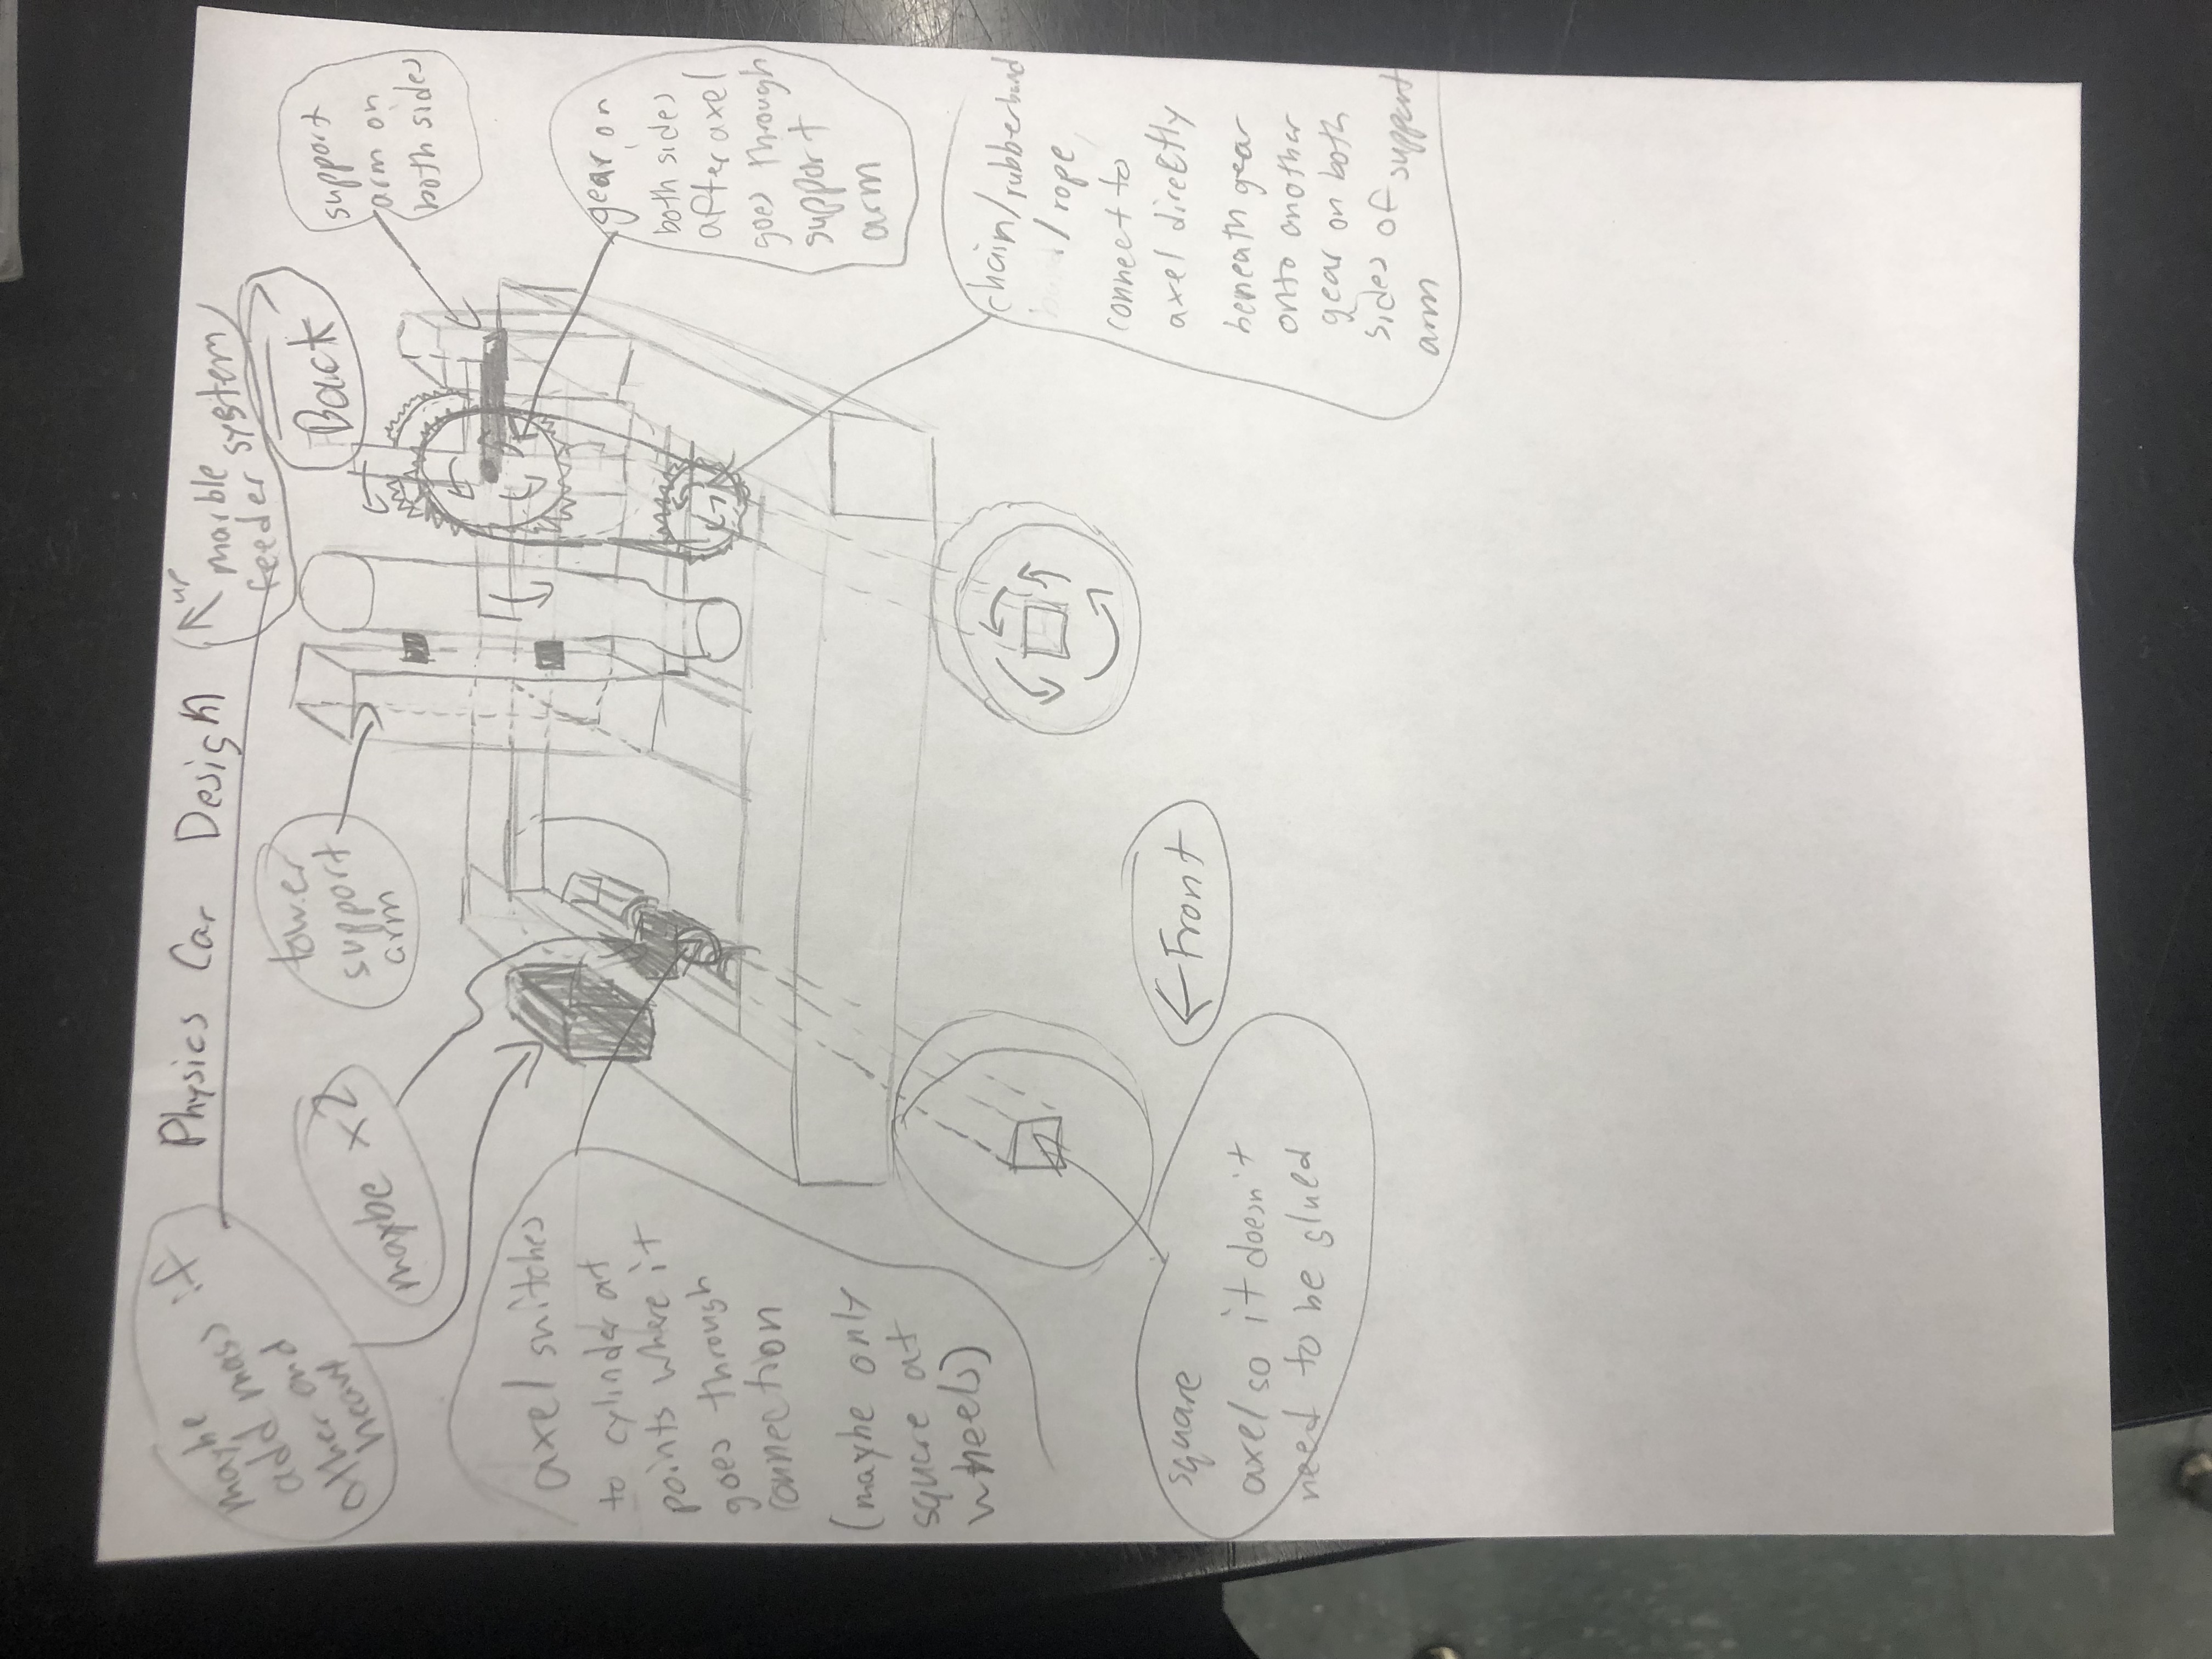 Physics Car Design
up
marble
feeder system
maybe
add mass if
other end
heavy
maybe x2
tower
support
arm
Back
support
arm on
both sides
axel switches
to cylinder at
points where it
goes through
connection
(maybe only
square at
wheels)
gear on
both sides
after axel
goes through
support
arm
chain/rubberband
/rope
connect to
axel directly
beneath gear
onto another
gear on both
sides of support
arm
Front
square
axel so it doesn't
need to be glued